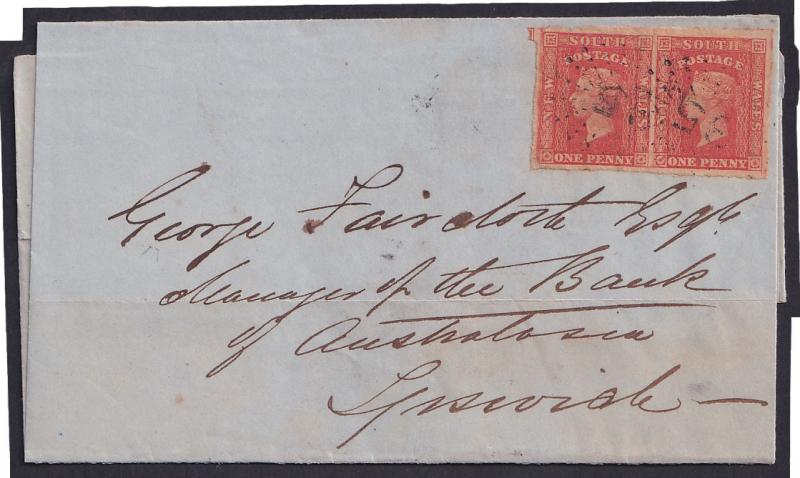 SOUTH SOUTH
POSTAGE POSTAGE
NEW WALES WALES
ONE PENNY ONE PENNY
George Esqr
Manager of the Bank
of Australasia
Ipswich